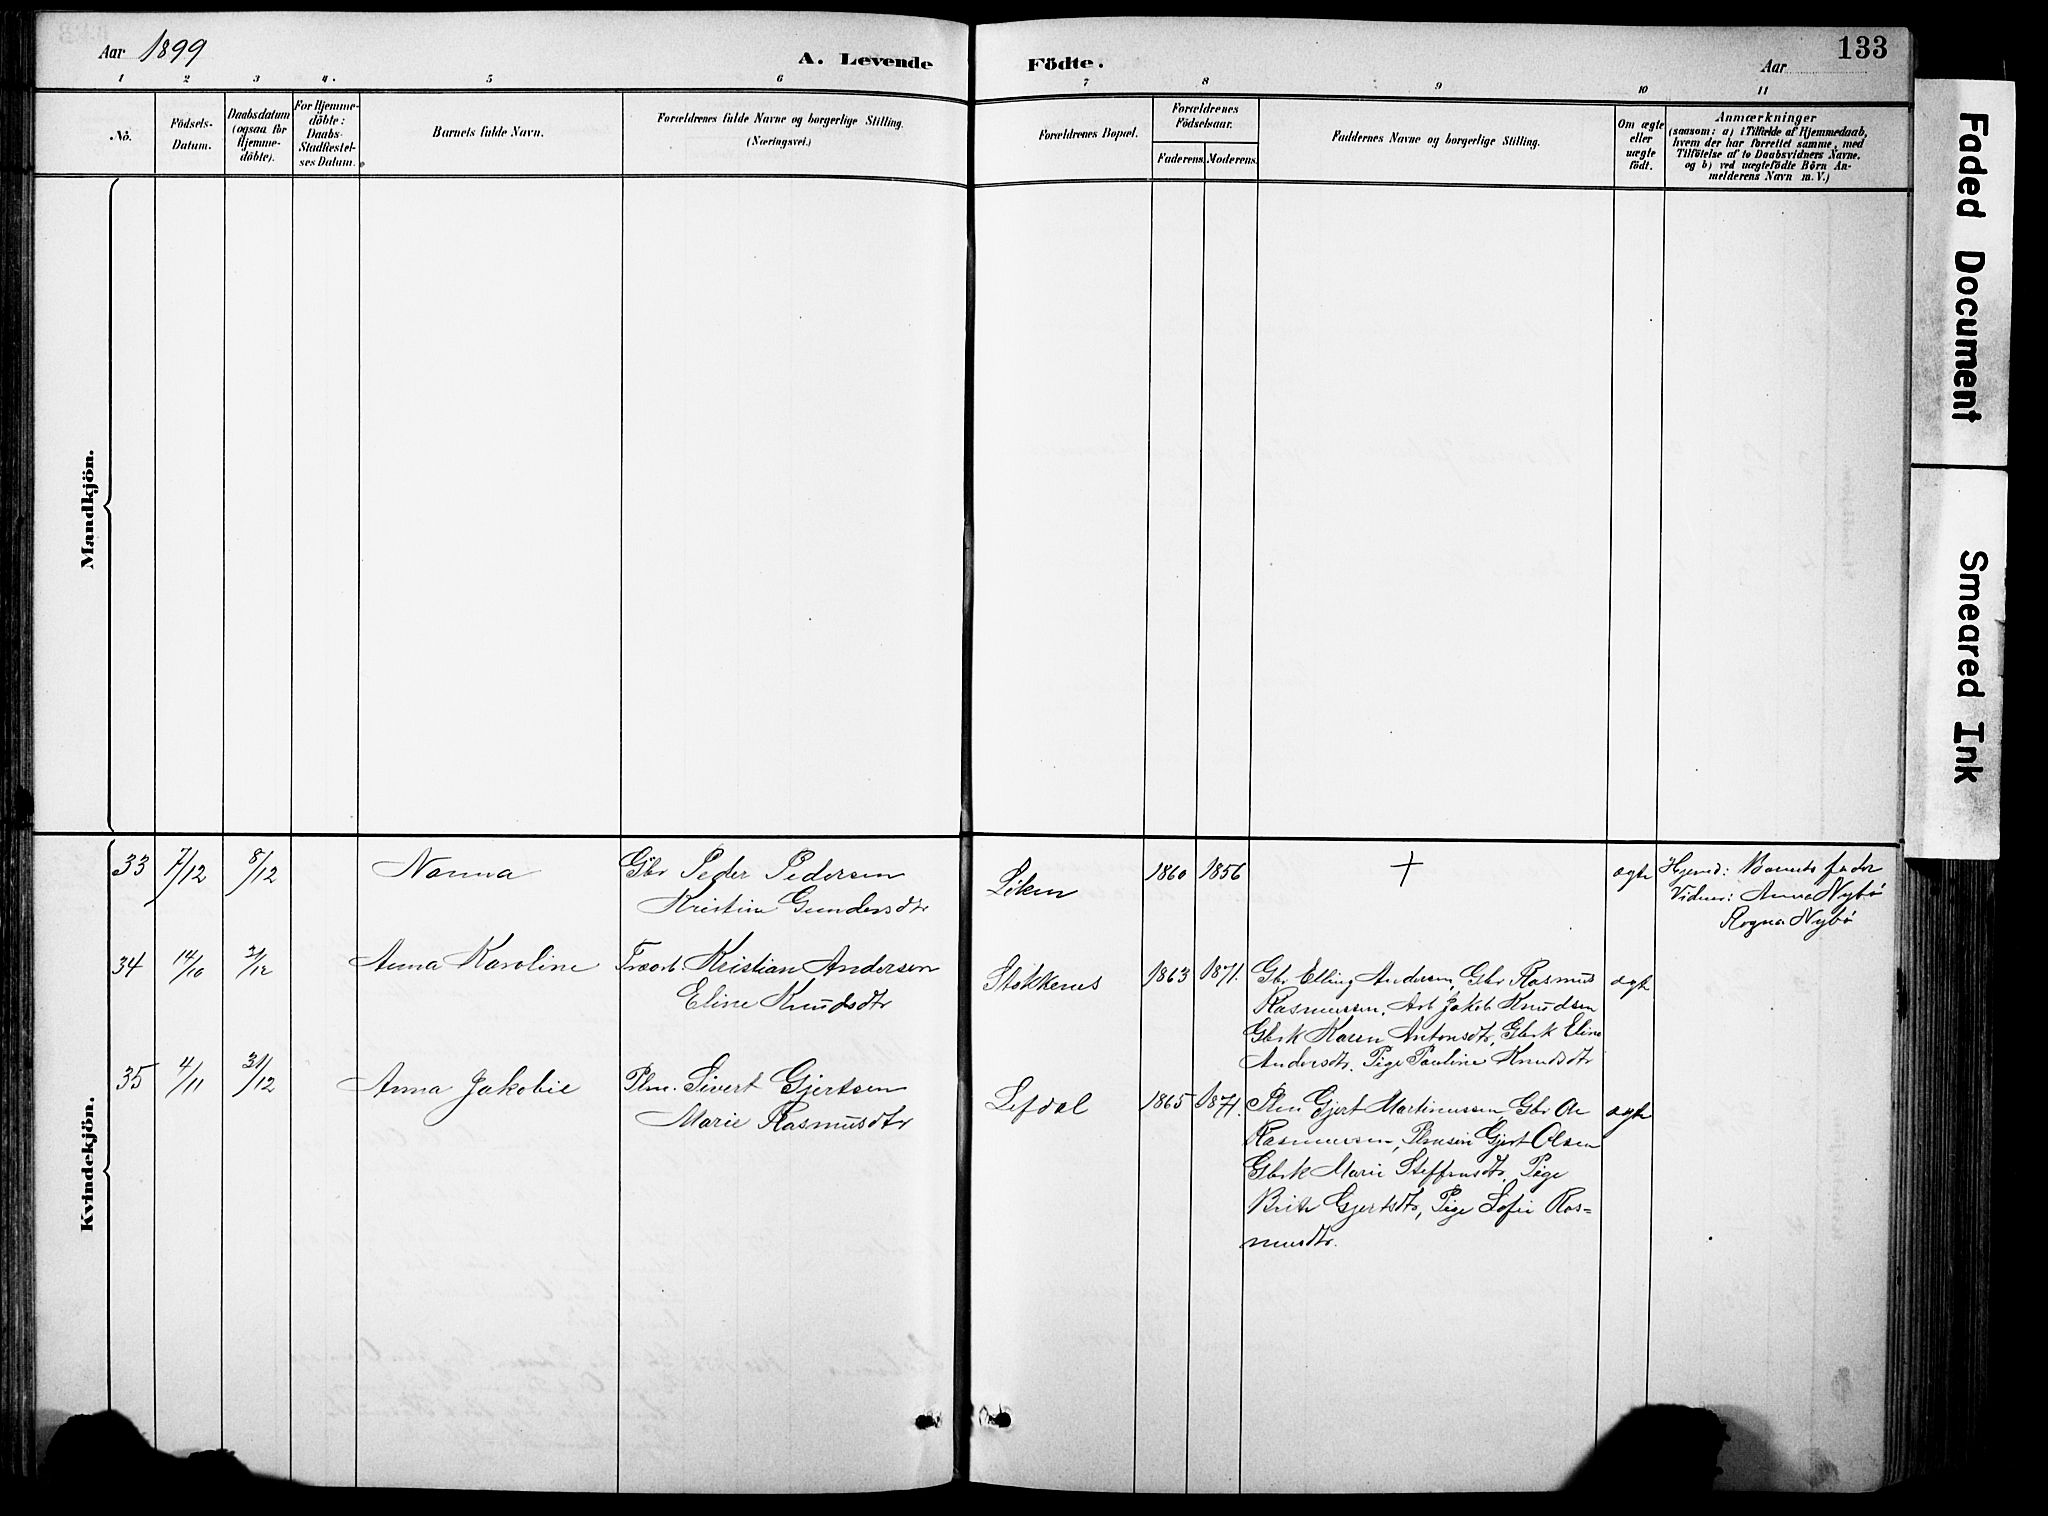 Aar 1899
A. Levende Födte.
Aar
133
1 2 3 4. 5 6 7 8 9 10 11
No.
Födsels-Datum.
Daabsdatum (ogsaa for Hjemme-döbte).
For Hjemme-döbte: Daabs-Stadfæstel-ses Datum.
Barnets fulde Navn.
Forældrenes fulde Navne og borgerlige Stilling.
(Næringsvei.)
Forældrenes Bopæl.
Forældrenes Födselsaar.
Faderens. Moderens.
Faddernes Navne og borgerlige Stilling.
Om ægte eller uægte födt.
Anmærkninger
(saasom: a) i Tilfælde af Hjemmedaab,
hvem der har forrettet samme, med
Tilföielse af to Daabsvidners Navne,
og b) ved uægtefödte Börn An-
melderens Navn m. V.)
Mandkjön.
Kvindekjön.
33 7/12 8/12 Nanna Gbr Peder Pedersen Löken 1860 1856 + ægte Hjemd: Barnets fader
Kristine Gundersdtr Vidner: Anna Nybö
Ragna Nybö
34 14/10 21/12 Anna Karoline Kristian Andersen Stokkenes 1863 1871. Gbr Elling Andersen, Gbr Rasmus ægte
Eline Knudsdtr Rasmussen, Arb Jakob Knudsen
Gbrk Karen Antonsdtr, Gbrk Eline
Andersdtr. Pige Pauline Knudsdtr
35 4/11 31/12 Anna Jakobie Plm. Sivert Gjertsen Lefdal 1865 1871. Plm Gjert Martinussen, Gbr Ole ægte
Marie Rasmusdtr Rasmussen, Plmsön Gjert Olsen
Gbrk Marie Steffensdtr, Pige
Brite Gjertsdtr, Pige Sofie Ras-
musdtr.
Faded Document
Smeared Ink